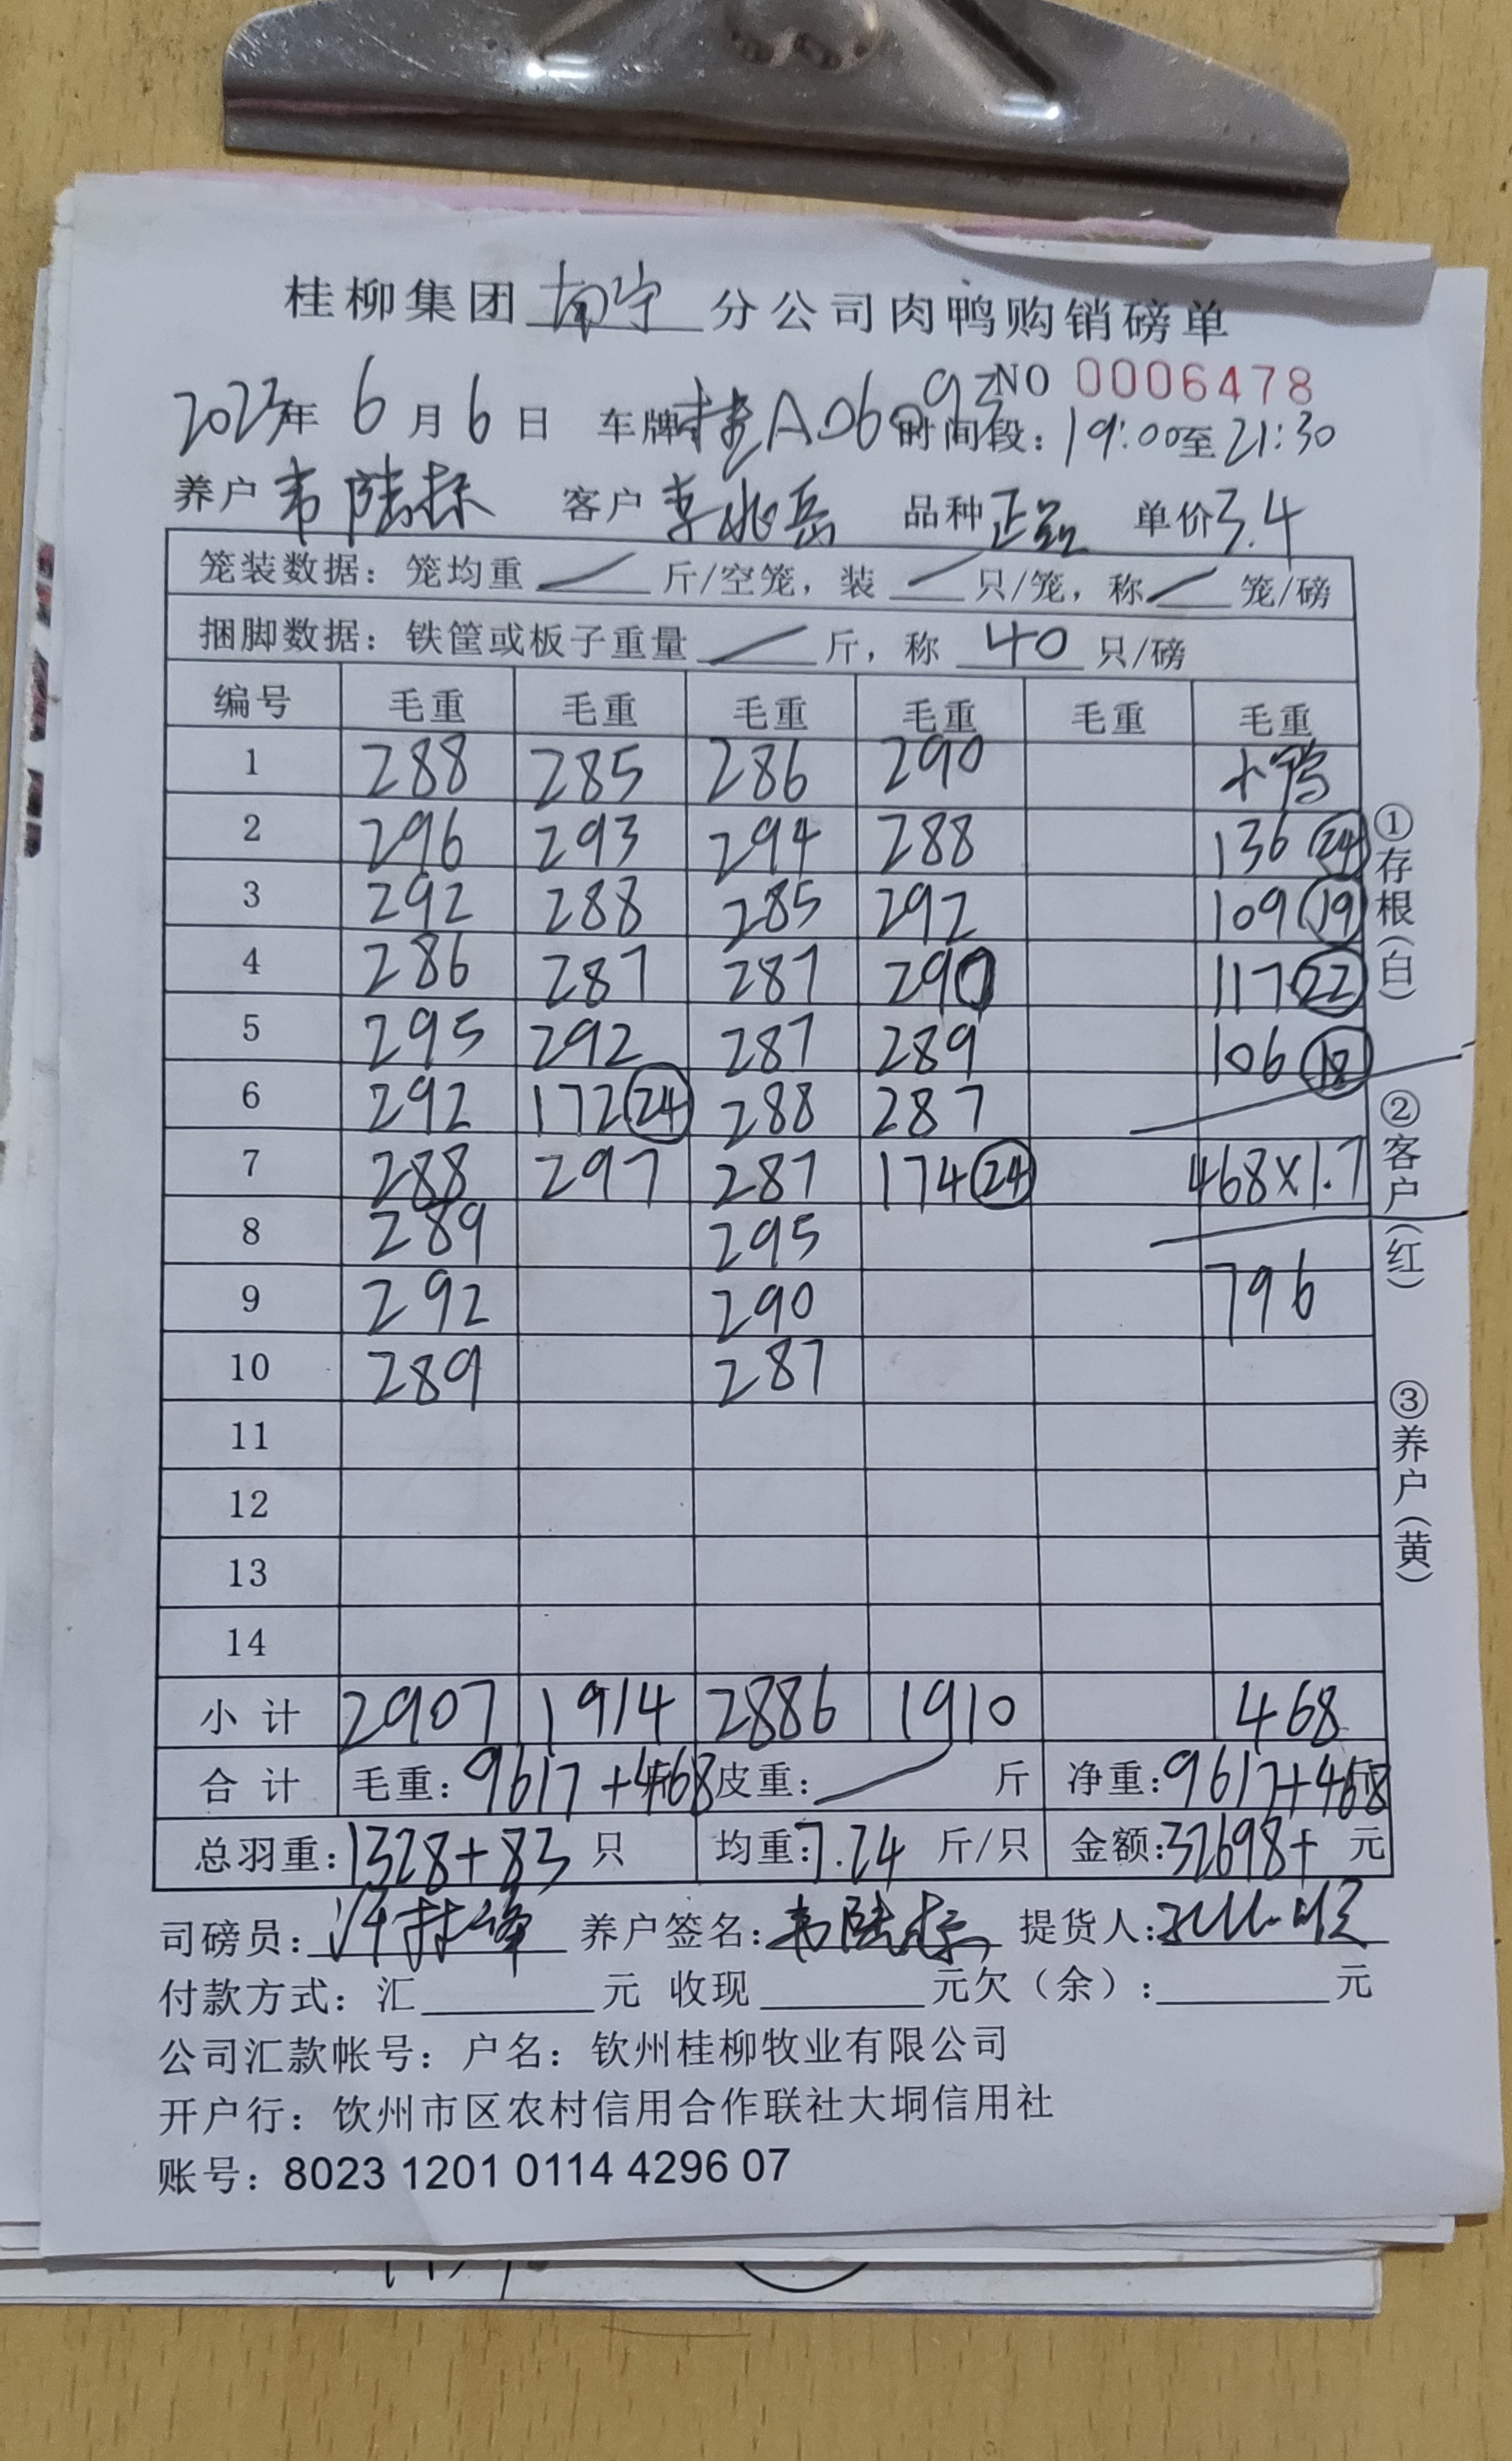 桂柳集团 南宁 分公司肉鸭购销磅单
NO 0006478
2023年 6月 6日 车牌 桂A06 时间段：19:00至21:30
养户 韦陆标 客户 李兆岳 品种 单价3.4
笼装数据：笼均重 斤/空笼，装 只/笼，称 笼/磅
捆脚数据：铁筐或板子重量 斤，称 40 只/磅
编号 毛重 毛重 毛重 毛重 毛重 毛重
1 288 285 286 290 小鸭
2 296 293 294 288 136 24
3 292 288 285 292 109 19
4 286 287 287 290 117 22
5 295 292 287 289 106 18
6 292 172 24 288 287
7 288 297 287 174 24 468×1.7
8 289 295
9 292 290 796
10 289 287
11
12
13
14
小计 2907 1914 2886 1910 468
合计 毛重：9617+468 皮重： 斤 净重：9617+468
总羽重：1328+83 只 均重：7.24 斤/只 金额：32698+ 元
司磅员： 养户签名：韦陆标 提货人：
付款方式：汇 元 收现 元欠（余）： 元
公司汇款帐号：户名：钦州桂柳牧业有限公司
开户行：钦州市区农村信用合作联社大垌信用社
账号：8023 1201 0114 4296 07
①存根（白）
②客户（红）
③养户（黄）